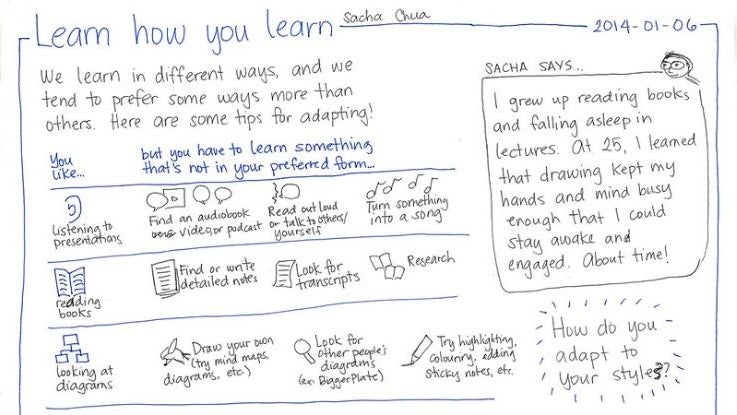 Learn how you learn
Sacha Chua
2014-01-06
We learn in different ways, and we
tend to prefer some ways more than
others. Here are some tips for adapting!
You
like...
but you have to learn something
that's not in your preferred form...
Listening to
presentations
Find an audiobook
video, or podcast
Read out loud
or talk to others/
yourself
Turn something
into a song
reading
books
Find or write
detailed notes
Look for
transcripts
Research
looking at
diagrams
Draw your own
(try mind maps,
diagrams, etc.)
Look for
other people's
diagrams
(ex: BiggerPlate)
Try highlighting,
colouring, adding
sticky notes, etc.
SACHA SAYS...
I grew up reading books
and falling asleep in
lectures. At 25, I learned
that drawing kept my
hands and mind busy
enough that I could
stay awake and
engaged. About time!
How do you
adapt to
your styles?